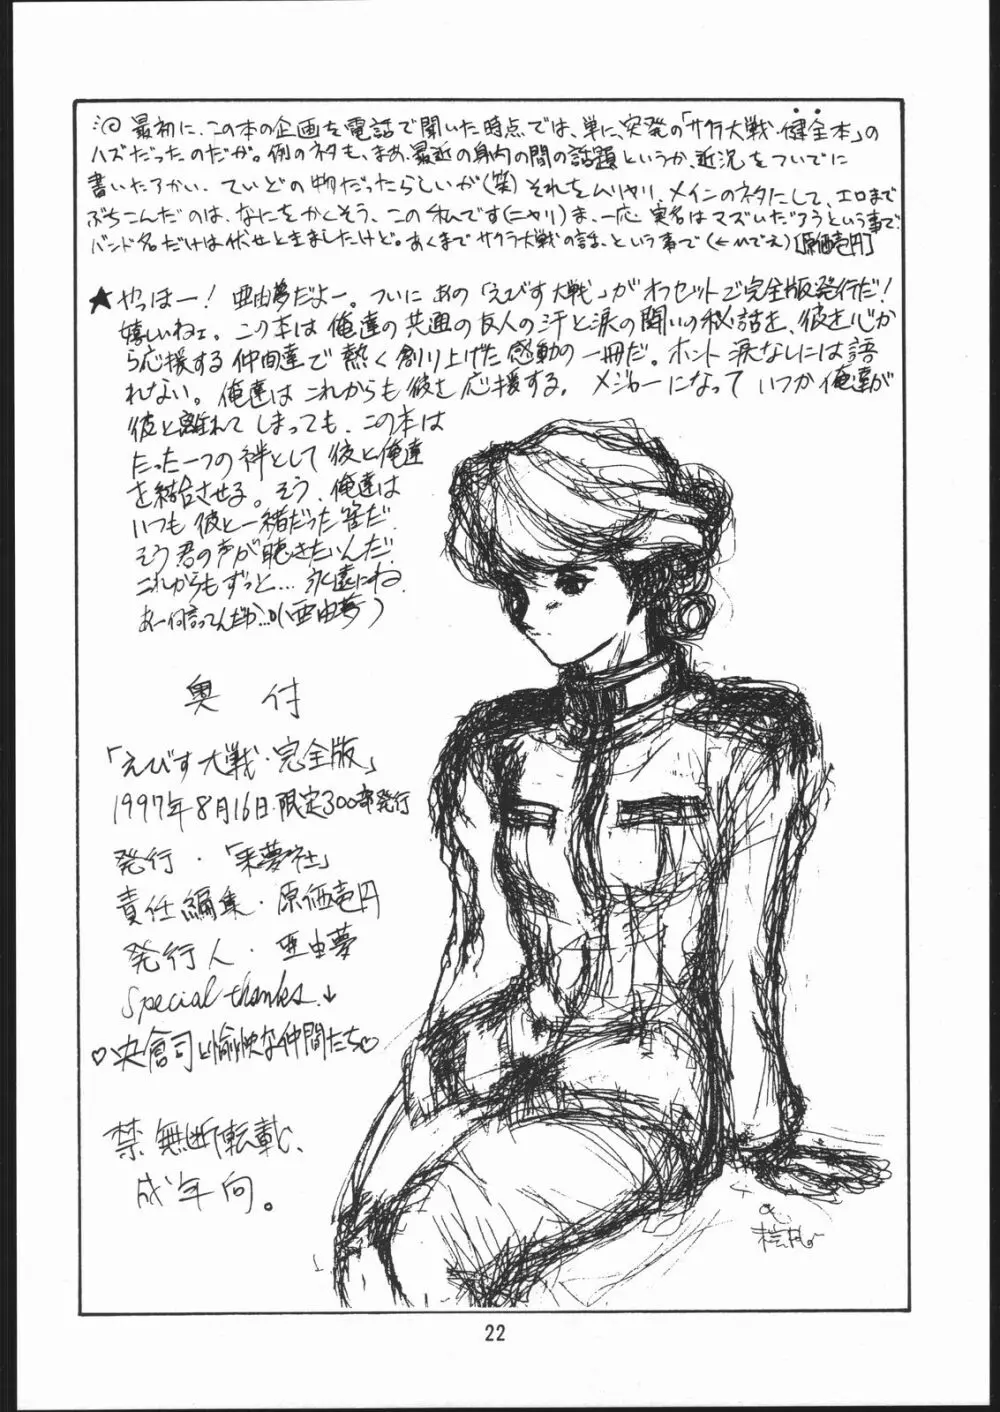 最初に、この本の企画を電話で聞いた時点では、単に、突発の「サクラ大戦・健全本」の
ハズだったのだが。例のネタも、まあ、最近の身内の間の話題というか、近況をついでに
書いたろかい、ていどの物だったらしいが(笑)それをムリヤリ、メインのネタにして、エロまで
ぶちこんだのは、なにをかくそう、この私です(ニヤリ)ま、一応実名はマズいだろうという事で、
バンド名だけは伏せときましたけど。あくまでサクラ大戦の話、という事で(←ひでえ)[原価壱円]
★やっほー!亜由夢だよー。ついにあの「えびす大戦」がオフセットで完全版発行だ!
嬉しいねェ。この本は俺達の共通の友人の汗と涙の闘いの秘話を、彼を心か
ら応援する仲間達で熱く創り上げた感動の一冊だ。ホント涙なしには語
れない。俺達はこれからも彼を応援する。メジャーになっていつか俺達が
彼と離れてしまっても、この本は
たった一つの絆として彼と俺達
を結合させる。そう、俺達は
いつも彼と一緒だった筈だ。
そう君の声が聴きたいんだ。
これからもずっと…永遠にね。
あー何言ってんだか…。(亜由夢)
奥付
「えびす大戦・完全版」
1997年8月16日・限定300部発行
発行・「来夢社」
責任編集・原価壱円
発行人・亜由夢
Special thanks.↓
♡央倉司と愉快な仲間たち♡
禁無断転載、
成年向。
22